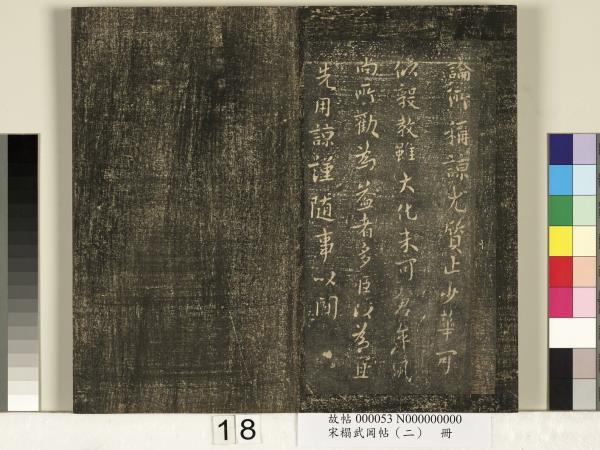 論所稱諒尤質止少華可
以毅教雖大化未可
尚所勸為益者多臣以為宜
先用諒謹隨事以聞
18
故帖 000053 N000000000
宋榻武岡帖（二） 冊